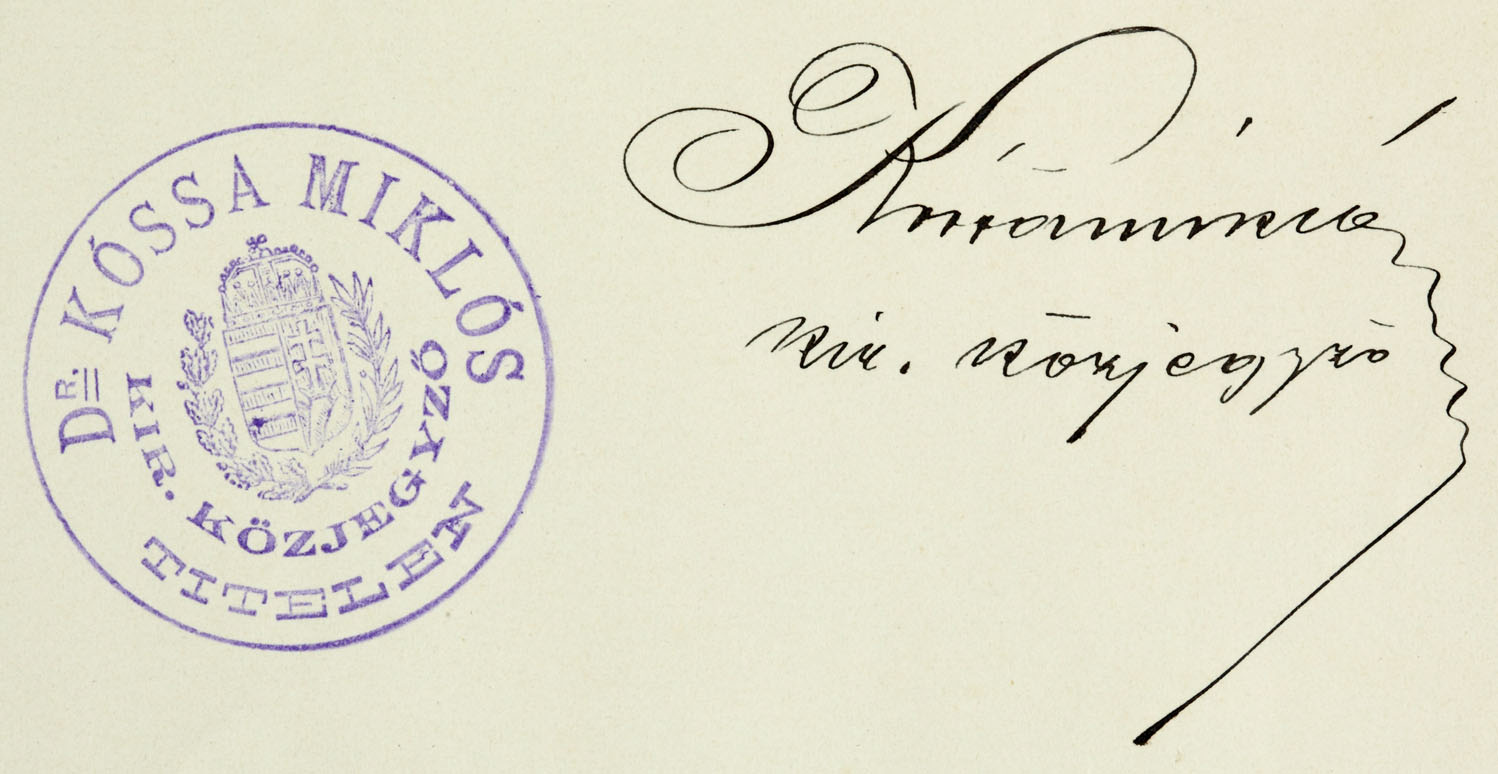 DR. KÓSSA MIKLÓS
KIR. KÖZJEGYZŐ
TITELEN
Kóssa Miklós
kir. közjegyző